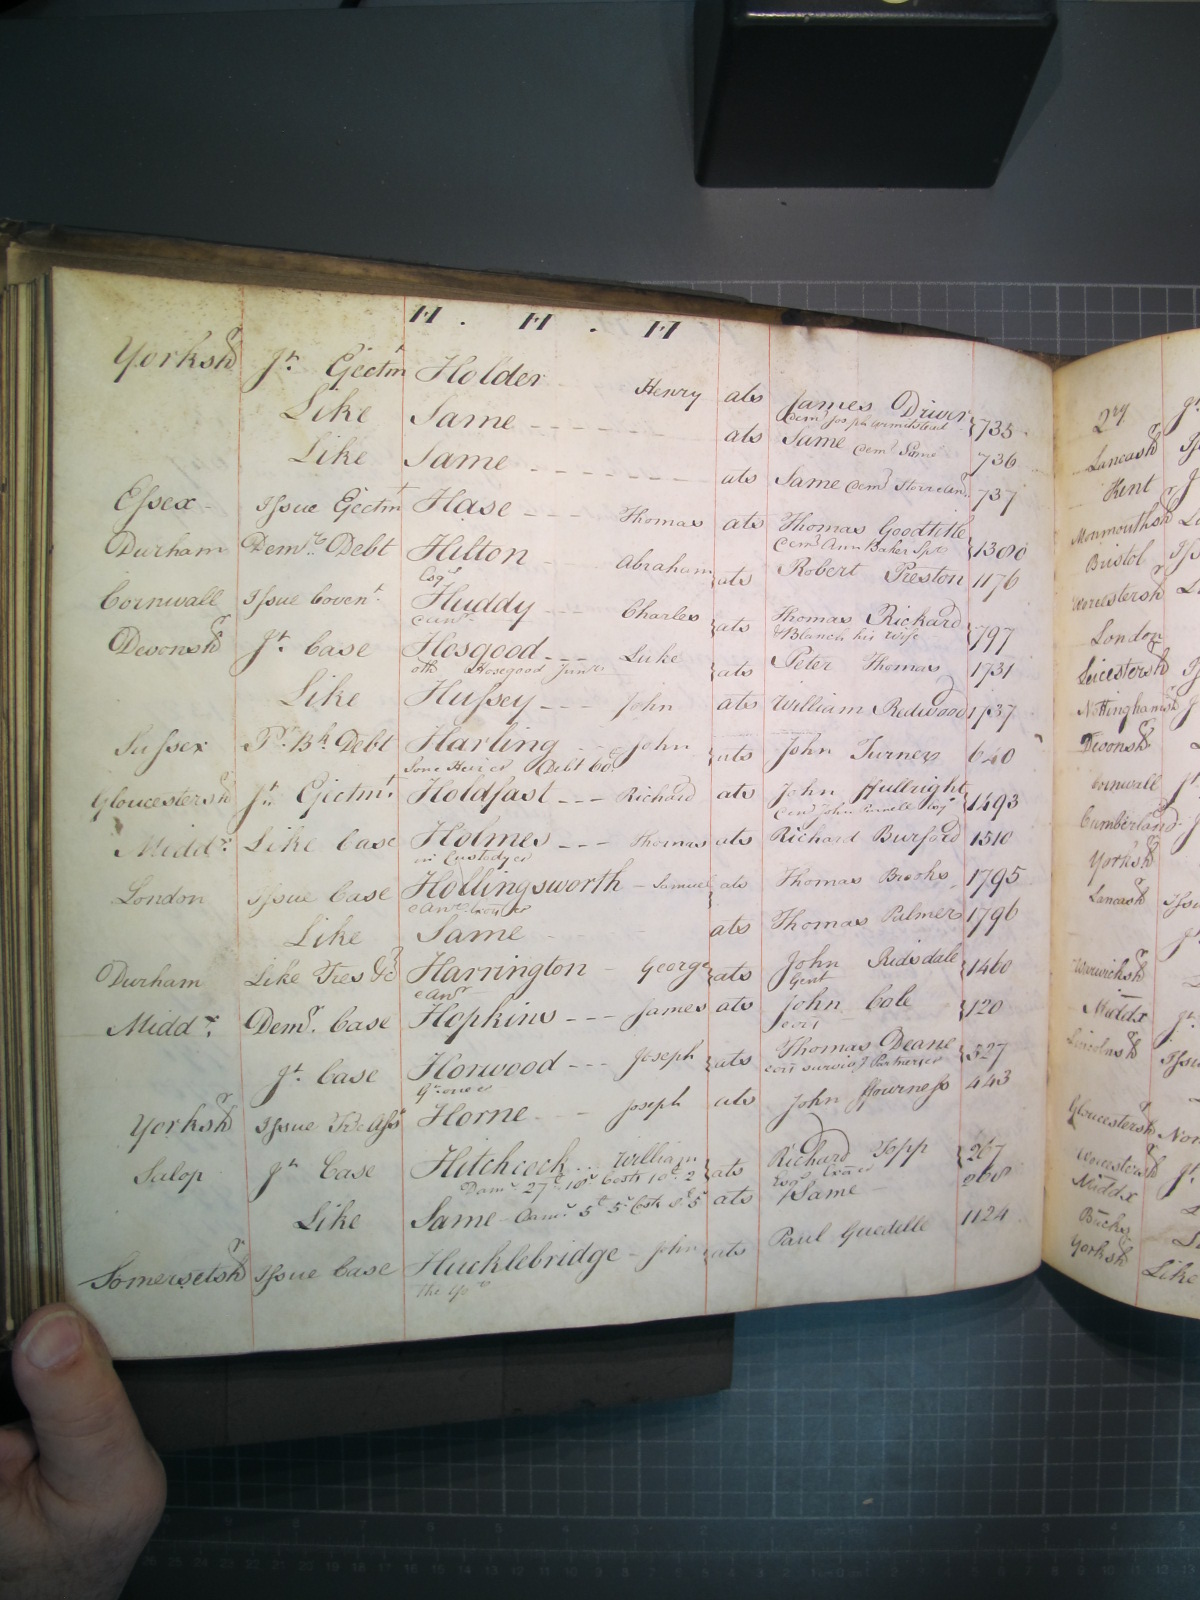 H . H . H
Yorksh^r J^t. Ejectm^t Holder Henry ats James Driver 735
dem^d Joseph Armitstead
Like Same ats Same dem^d Same 736
Like Same ats Same dem^d 737
Essex Issue Ejectm^t Hase Thomas ats Thomas Goodtitle 1300
dem^d Ann Baker Sp^r
Durham Dem^r Debt Hilton Abraham ats Robert Preston 1176
Esq^r
Cornwall Issue Coven^t Huddy Charles ats Thomas Rickard 797
& an^r & Blanch his wife
Devonsh^r J^t. Case Hosgood Luke ats Peter Thomas 1731
oth Hosegood Jun^r
Like Hussey John ats William Redwood 1737
Sussex Debt Harling John ats John Turner 640
Sone Heir &c Debt 60
Gloucestersh^r J^t. Ejectm^t Holdfast Richard ats John Ffullright 1493
dem^d John Purnell Esq^r
Midd^x Like Case Holmes Thomas ats Richard Burford 1510
in Custody &c
London Issue Case Hollingsworth Samuel ats Thomas Brooks 1795
& an^r &c
Like Same ats Thomas Palmer 1796
Durham Like Tres &c Harrington George ats John Ridsdale 1460
& an^r Gent
Midd^x Dem^r. Case Hopkins James ats John Cole 120
J^t. Case Horwood Joseph ats Thomas Deane 527
Grocer surviv^g Partner &c
Yorksh^r Issue Horne Joseph ats John Ffourness 443
Salop J^t Case Hitchcock William ats Richard Topp 267
Dam^s. 27 10 Costs 10 2 Esq^r
Like Same Dam^s 5 5 Costs 8 5 ats Same 268
Somersetsh^r Issue Case Hucklebridge John ats Paul Guedelle 1124
the
Lancash^r
Kent
Monmouthsh^r
Bristol
Worcestersh^r
London
Leicestersh^r
Nottinghamsh^r
Devonsh^r
Cornwall
Cumberland
Yorksh^r
Lancash^r
Warwicksh^r
Middx
Lincolnsh^r
Gloucestersh^r
Worcestersh^r
Middx
Bucks
Yorksh^r Like